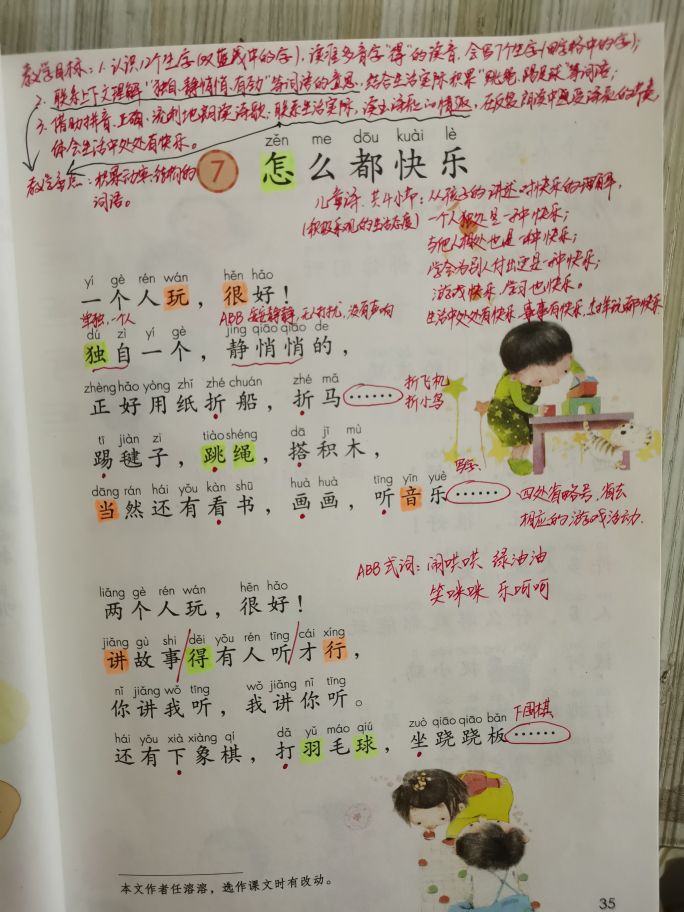 教学目标：1.认识12个生字(双直线中的字)，读准多音字"得"的读音，会写7个生字(田字格中的字)；
2.联系上下文理解"独自、静悄悄、有劲"等词语的意思，结合生活实际积累"跳绳、踢足球"等词语；
3.借助拼音，正确、流利地朗读诗歌，联系生活实际，读出诗歌的情感，在反复朗读中感受诗歌的节奏
体会生活中处处有快乐。
教学重点：积累动宾结构的
词语。
zěn me dōu kuài lè
7 怎么都快乐
儿童诗，共4小节，从孩子的讲述对快乐的理解，
(积极乐观的生活态度)
一个人独处是一种快乐；
与他人相处也是一种快乐；
学会为别人付出更是一种快乐；
游戏快乐，学习也快乐。
生活中处处有快乐，事事有快乐，怎么都快乐
yí gè rén wán hěn hǎo
一个人玩，很好！
单独，一个人
ABB 安安静静，无人打扰，没有声响
dú zì yí gè jìng qiāo qiāo de
独自一个，静悄悄的，
zhèng hǎo yòng zhǐ zhé chuán zhé mǎ
正好用纸折船，折马……
折飞机
折小鸟
tī jiàn zi tiào shéng dā jī mù
踢毽子，跳绳，搭积木，
dāng rán hái yǒu kàn shū huà huà tīng yīn yuè
当然还有看书，画画，听音乐……
写字
四处省略号，省去
相应的游戏活动.
ABB式词：闹哄哄 绿油油
笑咪咪 乐呵呵
liǎng gè rén wán hěn hǎo
两个人玩，很好！
jiǎng gù shi děi yǒu rén tīng cái xíng
讲故事得有人听才行，
nǐ jiǎng wǒ tīng wǒ jiǎng nǐ tīng
你讲我听，我讲你听。
hái yǒu xià xiàng qí dǎ yǔ máo qiú zuò qiāo qiāo bǎn
还有下象棋，打羽毛球，坐跷跷板……
下围棋
本文作者任溶溶，选作课文时有改动。
35